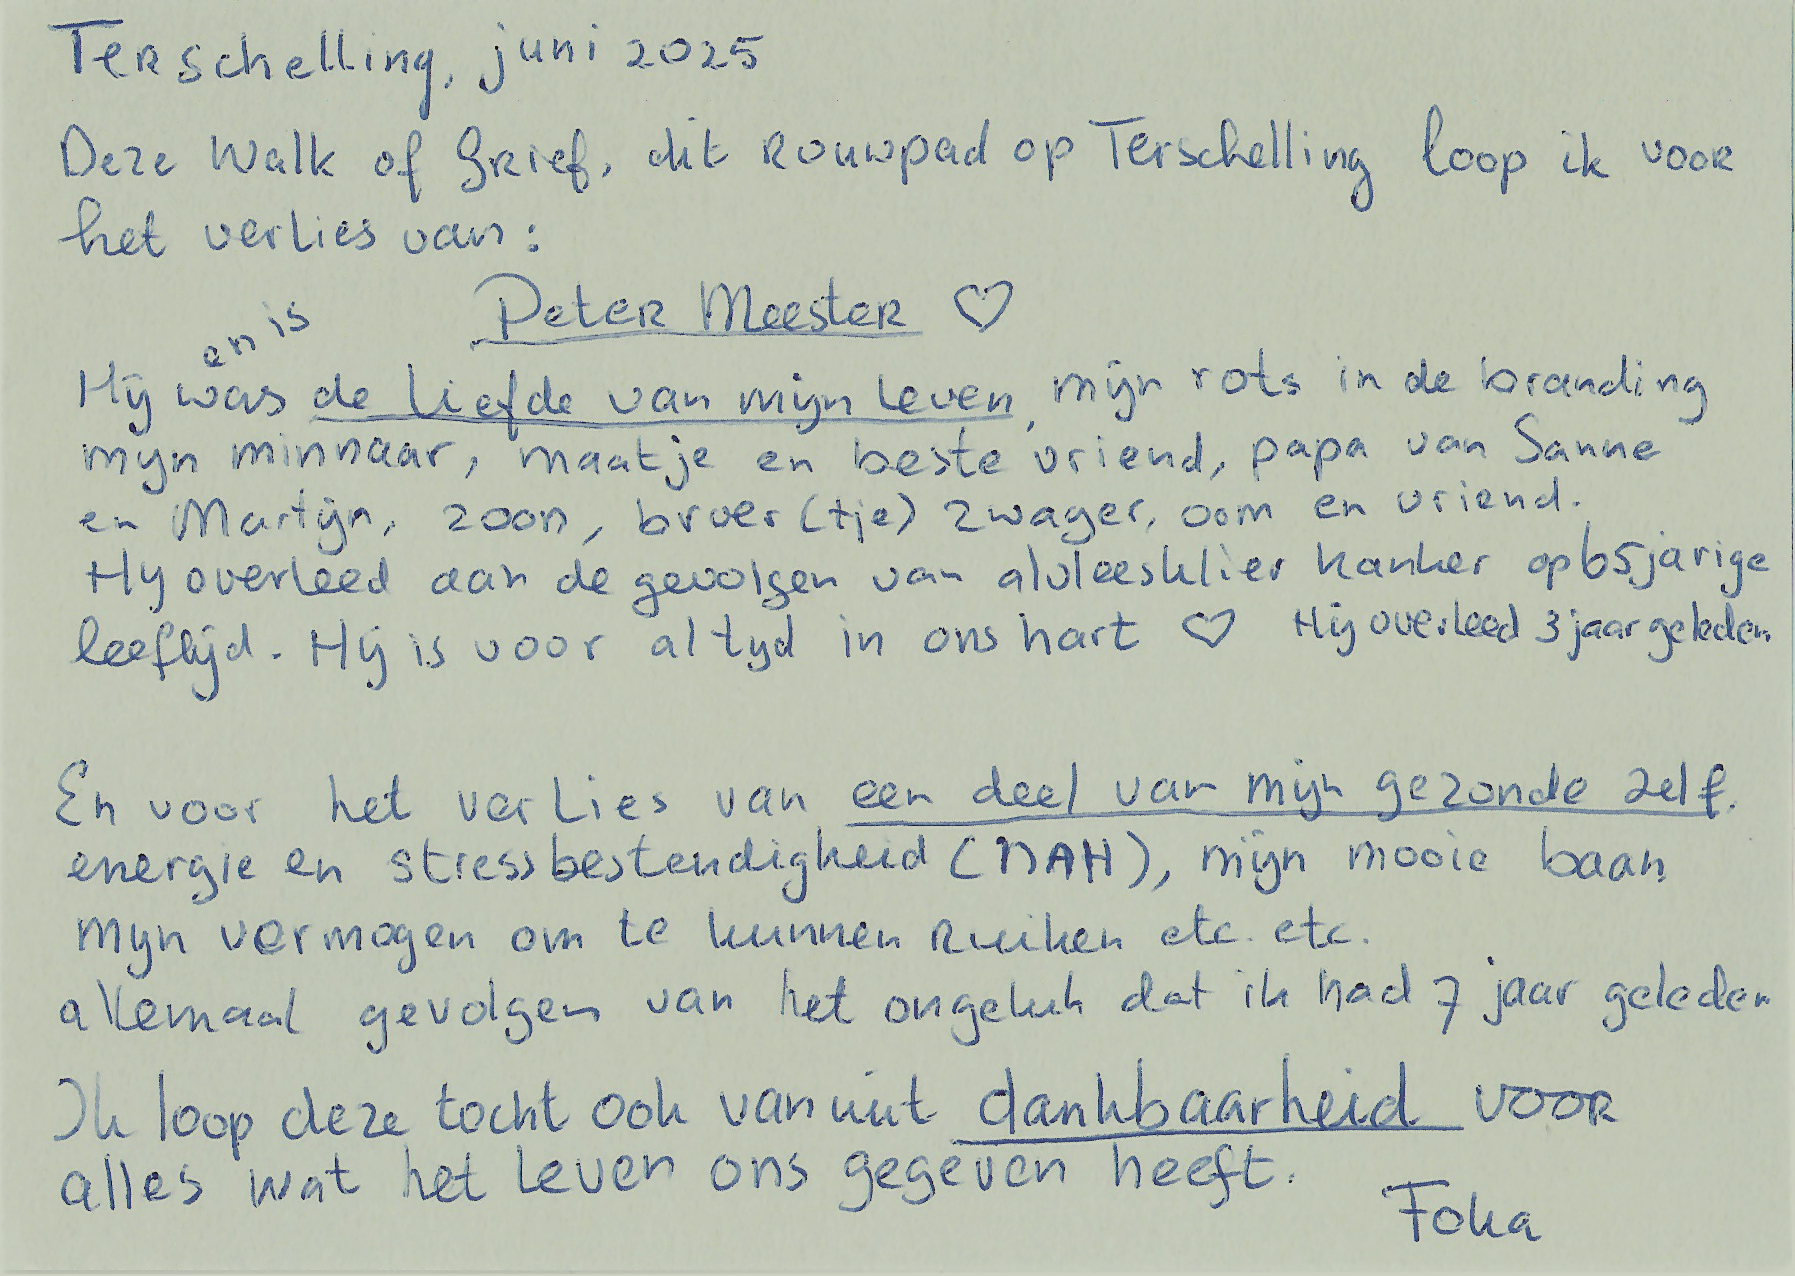 Terschelling, juni 2025
Deze Walk of Grief, dit rouwpad op Terschelling loop ik voor
het verlies van:
Peter Meester ♡
en is
Hij was de liefde van mijn leven, mijn rots in de branding
mijn minnaar, maatje en beste vriend, papa van Sanne
en Martijn, zoon, broer(tje) zwager, oom en vriend.
Hij overleed aan de gevolgen van alvleesklier kanker op 65 jarige
leeftijd. Hij is voor altijd in ons hart ♡ Hij overleed 3 jaar geleden
En voor het verlies van een deel van mijn gezonde zelf.
energie en stressbestendigheid (NAH), mijn mooie baan
mijn vermogen om te kunnen ruiken etc. etc.
allemaal gevolgen van het ongeluk dat ik had 7 jaar geleden
Ik loop deze tocht ook vanuit dankbaarheid voor
alles wat het leven ons gegeven heeft.
Foka